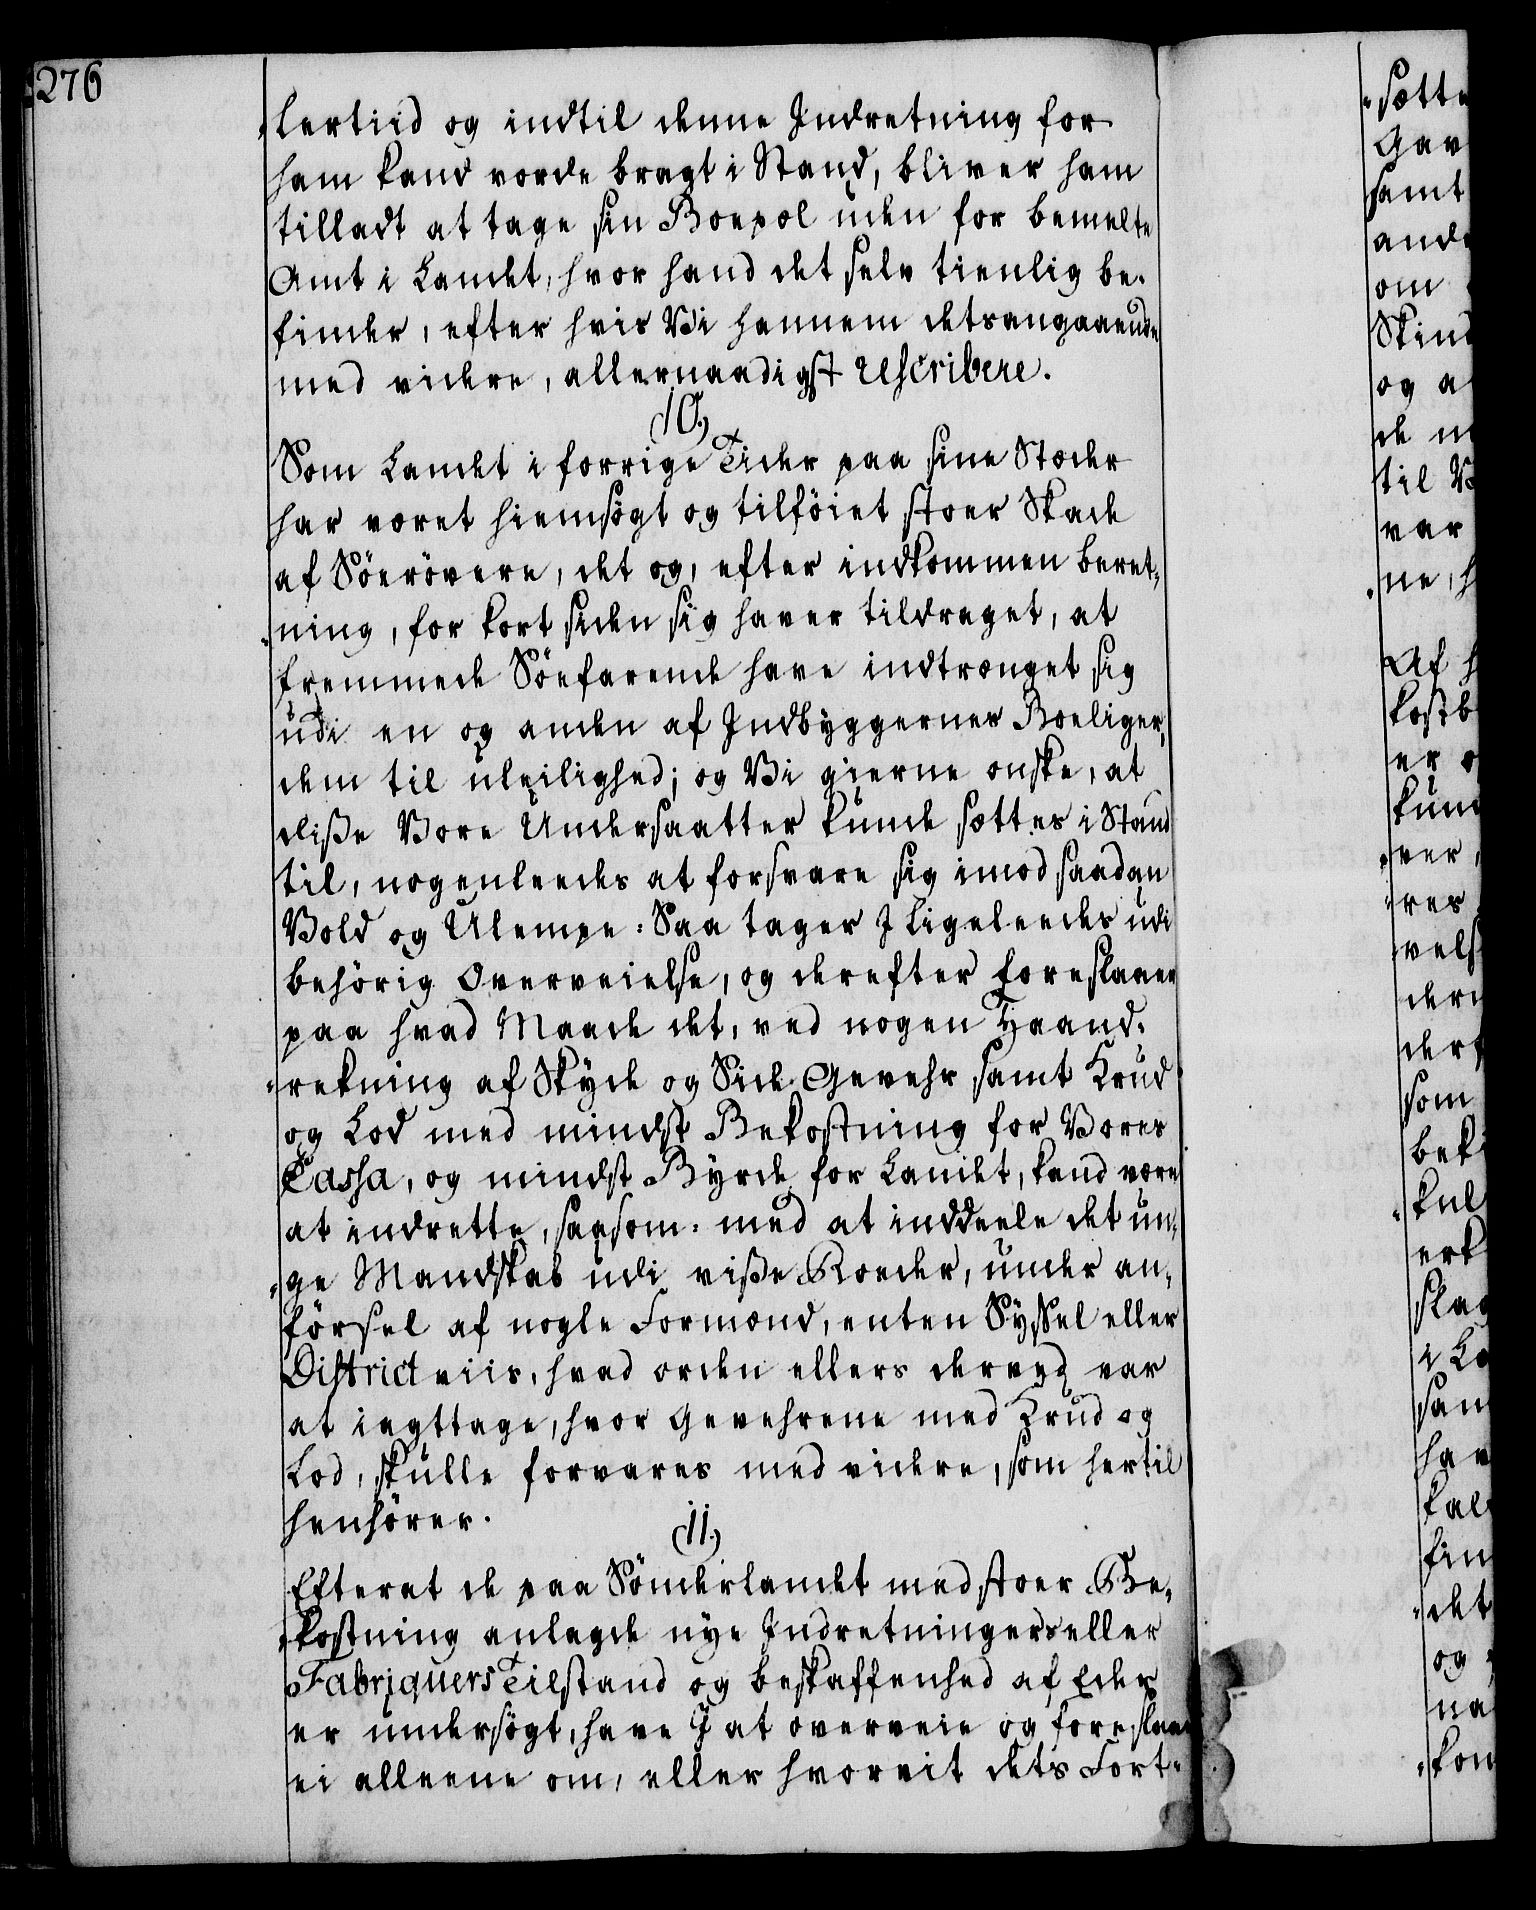 276
„lertiid og indtil denne Indretning for
ham kand vorde bragt i Stand, bliver ham
tilladt at tage sin Boepæl uden for bemelte
Amt i Landet, hvor hand det selv tienlig be-
finder, efter hvis Vi hannem detsangaaende
med videre, allernaadigst rescribere.
10.
Som Landet i forrige Tider paa sine Stæder
har været hiemsögt og tilföiet stoer Skade
af Söerövere, det og, efter indkommen beret„
„ning, for kort siden sig haver tildraget, at
fremmede Söefarende have indtrænget sig
udi en og anden af Indbyggernes Boeliger,
dem til uleilighed; og Vi gierne onske, at
diße Vore Undersaatter kunde sættes i Stand
til, nogenleedes at forsvare sig imod saadan
Vold og Ulempe: Saa tager I ligeleedes udi
behörig Overveielse, og derefter foreslaaer
paa hvad Maade det, ved nogen Haand-
„rekning af Skyde og Side-Gevehr samt Krud
og Lod med mindst Bekostning for Vores
Cassa, og mindst Byrde for Landet, kand være
at indrette, saasom: med at inddeele det un„
„ge Mandskab udi viße Roeder, under an„
försel af nogle Formænd, enten Syssel eller
District viis, hvad orden ellers derved var
at iagttage, hvor Gevehrene med Krud og
Lod, skulle forvares med videre, som hertil
henhörer.
11.
Efterat de paa Sönderlandet med stoer Be„
„kostning anlagde nye Indretningers eller
Fabriquers Tilstand og beskaffenhed af Eder
er undersögt, have I at overveie og foreslaae
ei alleene om, eller hvorvit dets Fort-
„sætte
Gav
samt
ande
om
Skind
og a
de
til V
var
ne, h
Af h
kostb
er
kund
ver
„res
vels
der
der
som
bek
kul
erk
slag
i Lo
sam
hav
kal
fin
„det
og
na
„kom